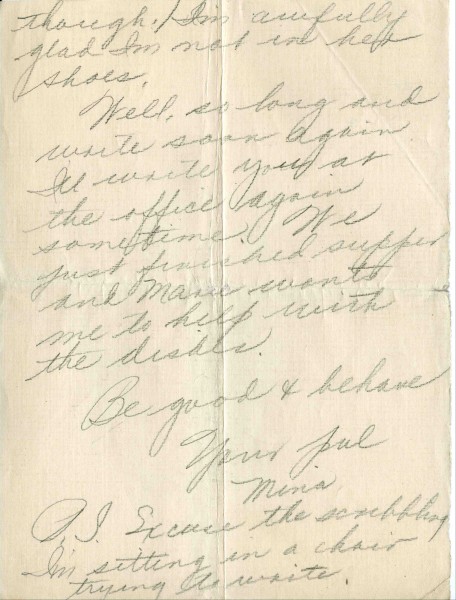 though. I'm awfully
glad I'm not in her
shoes.
Well, so long and
write soon again
I'll write you at
the office again
sometime. We
just finished supper
and Marie wants
me to help with
the dishes.
Be good & behave
Your pal
Mina
P.S. Excuse the scribbling
I'm sitting in a chair
trying to write.